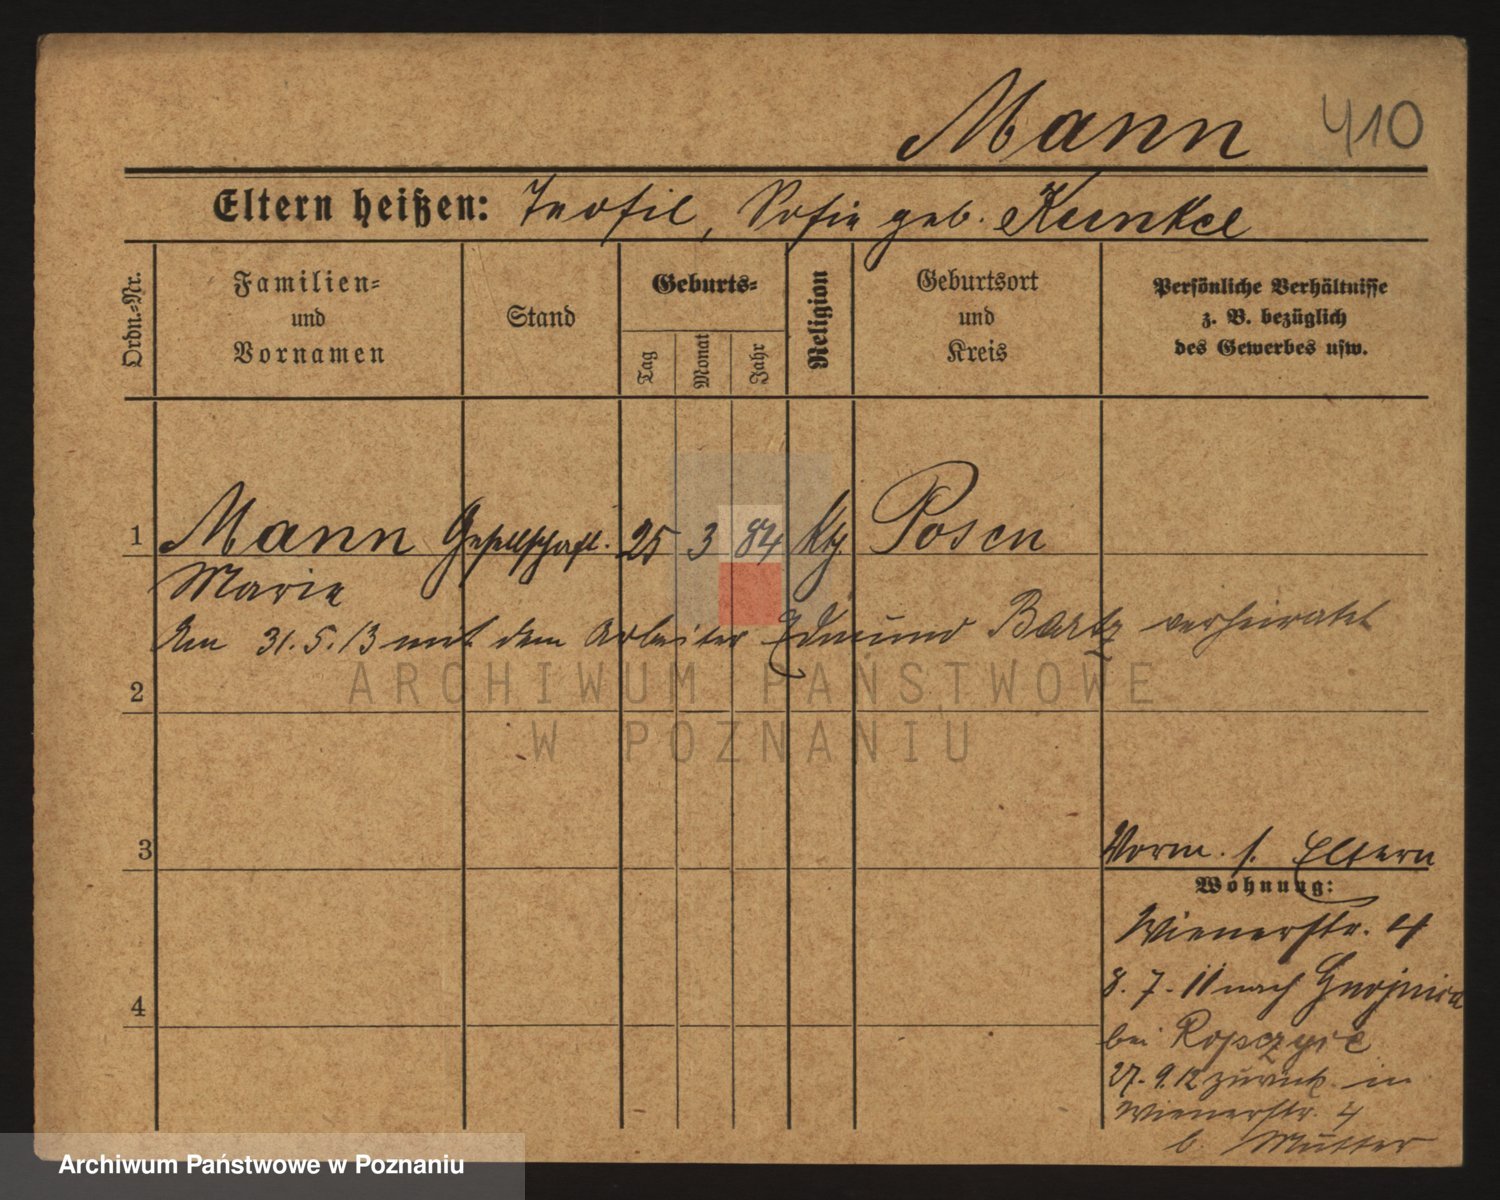 Mann 410
Eltern heißen: Teofil, Sofie geb. Kunkel
Ordn.-Nr.
Familien-
und
Vornamen
Stand
Geburts-
Tag
Monat
Jahr
Religion
Geburtsort
und
Kreis
Persönliche Verhältnisse
z. B. bezüglich
des Gewerbes usw.
1 Mann Gesellschaft. 25 3 84 Kth. Posen
Marie
Am 31.5.13 mit dem Arbeiter Edmund Bartz verheiratet
2
ARCHIWUM PAŃSTWOWE
W POZNANIU
3
Vorm. s. Eltern
Wohnung:
Wienerstr. 4
8.7.11 nach Gnojnica
4
bei Ropczyce
27.9.12 zurück in
Wienerstr. 4
b. Mutter
Archiwum Państwowe w Poznaniu